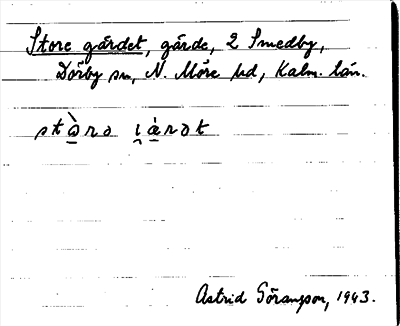 Store gärdet, gärde, 2 Smedby,
Dörby sn, N. Möre hd, Kalm. län.
Astrid Göranzon, 1943.